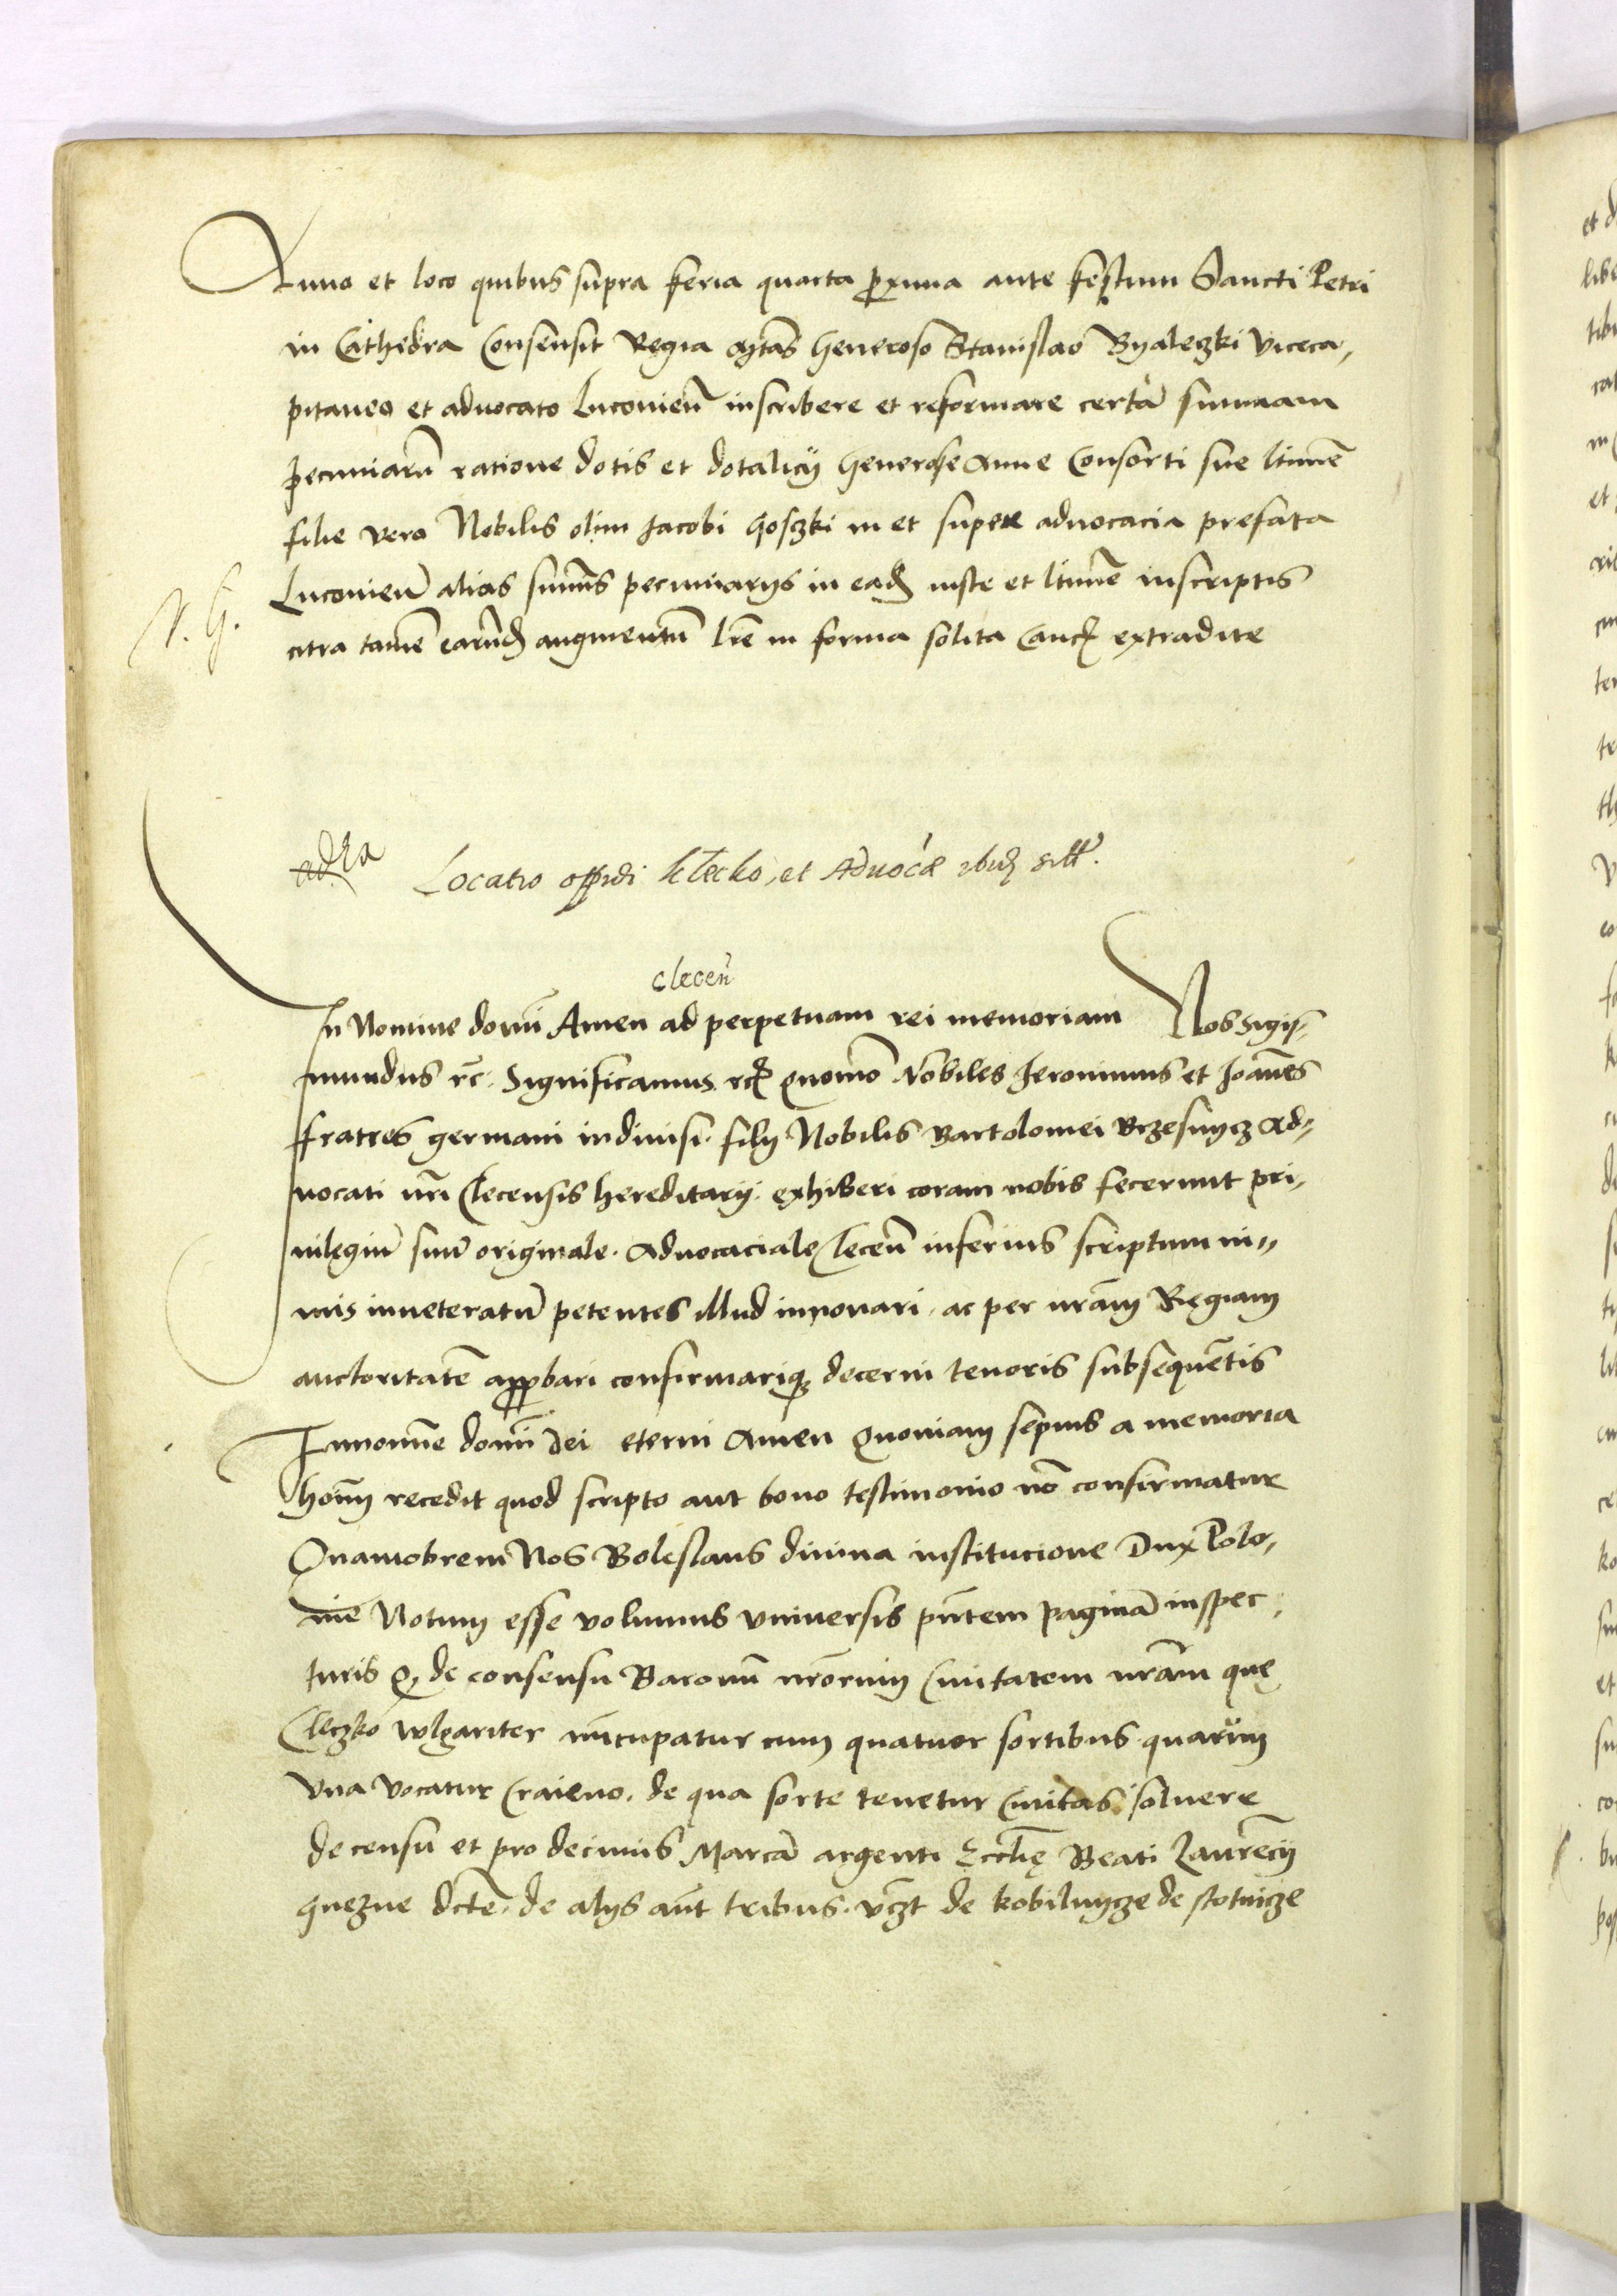 Anno et loco quibus supra feria quarta pxima ante festum Sancti Petri
in Cathedra Consensit Regia Mtas Generoso Stanislao Byaleczki viceca,
pitaneo et advocato Luconien inscribere et reformare certā summam
pecuniarū ratione dotis et dotalicij Generose Anne Consorti sue ltime
filie vero Nobilis olim Jacobi Gosczki in et super advocacia prefata
Luconien alias summis pecuniarijs in eadē iuste et ltime inscriptis
N. G.
citra tamē earundē augmentum lre in forma solita Canc extradite
Locatio oppidi Klecko, et Advocae ibid
clecen
In Nomine domi Amen ad perpetuam rei memoriam Nos Sigis-
mundus rc. Significamus rc quomō Nobiles Jeronimus et Joānes
fratres germani indivisi. filij Nobilis Bartolomei Brzesnycz Ad-
vocati nri Clecensis hereditarij. exhiberi coram nobis fecerunt pri-
vilegiū suū originale. Advocaciale Clecen inferius scriptum ni-
mis inveteratū petentes illud innovari. ac per nram Regiam
auctoritatē approbari confirmariq decerni tenoris subsequētis
In nomine domi Dei eterni Amen Quoniam sepius a memoria
hoim recedit quod scripto aut bono testimonio nō confirmatur
Quamobrem Nos Boleslaus divina institucione Dux Polo,
nie Notum esse volumus universis pntem paginā inspec,
turis q de consensu Baronū nrorum Civitatem nram que
Cleczko wlgariter nūcupatur cum quatuor sortibus quarum
una vocatur Craieno. de qua sorte tenetur Civitas solvere
de censu et pro decimis Marcā argenti Ecclie Beati Laurēcij
Gnezne dcte. de alijs aut tribus. vczt de Kobilnycze de Slotnicze